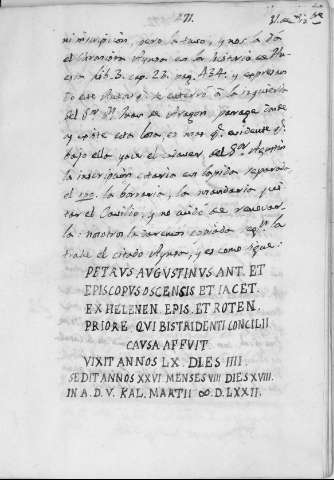 471.
ni inscripcion, pero la tuvo, y nos la dá
el Chronista Aynsa en la historia de Hu-
esca lib. 3. cap. 22. pag. 434. y expresan-
do este Autor q.e se enterró à la izquierda
del S.or D.n Juan de Aragon, parage donde
y existe esta losa, es mas q.e evidente q.e
bajo ella yace el cadaver del S.or Agustin
la inscripcion estaria en lapida separada
el la borraria, la mandaria qui
tar el Cavildo, y no cuidó de renovar-
la: nosotros la daremos copiada seg.n la
trahe el citado Aynsa, y es como sigue:
PETRVS AVGVSTINVS. ANT. ET
EPISCOPVS OSCENSIS ET IACET.
EX HELENEN. EPIS. ET ROTEN.
PRIORE QVI BIS TRIDENTI CONCILII
CAVSA AFFVIT
VIXIT ANNOS LX. DIES IIII
SEDIT ANNOS XXVI MENSES VIII DIES XVIII.
IN A. D. V. KAL. MARTII ∞. D. LXXII.